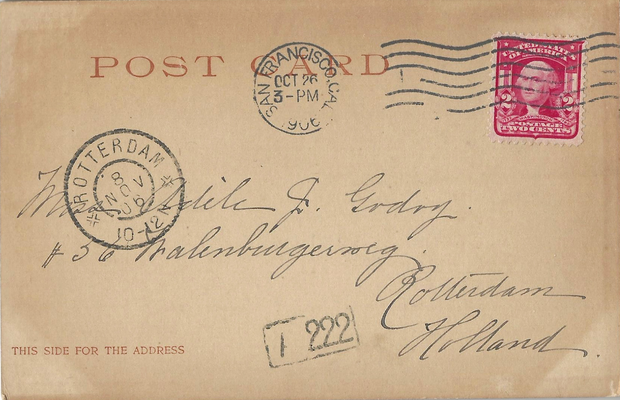 POST CARD
SAN FRANCISCO, CAL.
OCT 26
3-PM
1906
UNITED STATES
OF AMERICA
2 2
POSTAGE
TWO CENTS
ROTTERDAM
8
NOV
06
10-12V
Adile J. Godoy.
# 36 Walenburgerweg.
Rotterdam
Holland.
1 222
THIS SIDE FOR THE ADDRESS